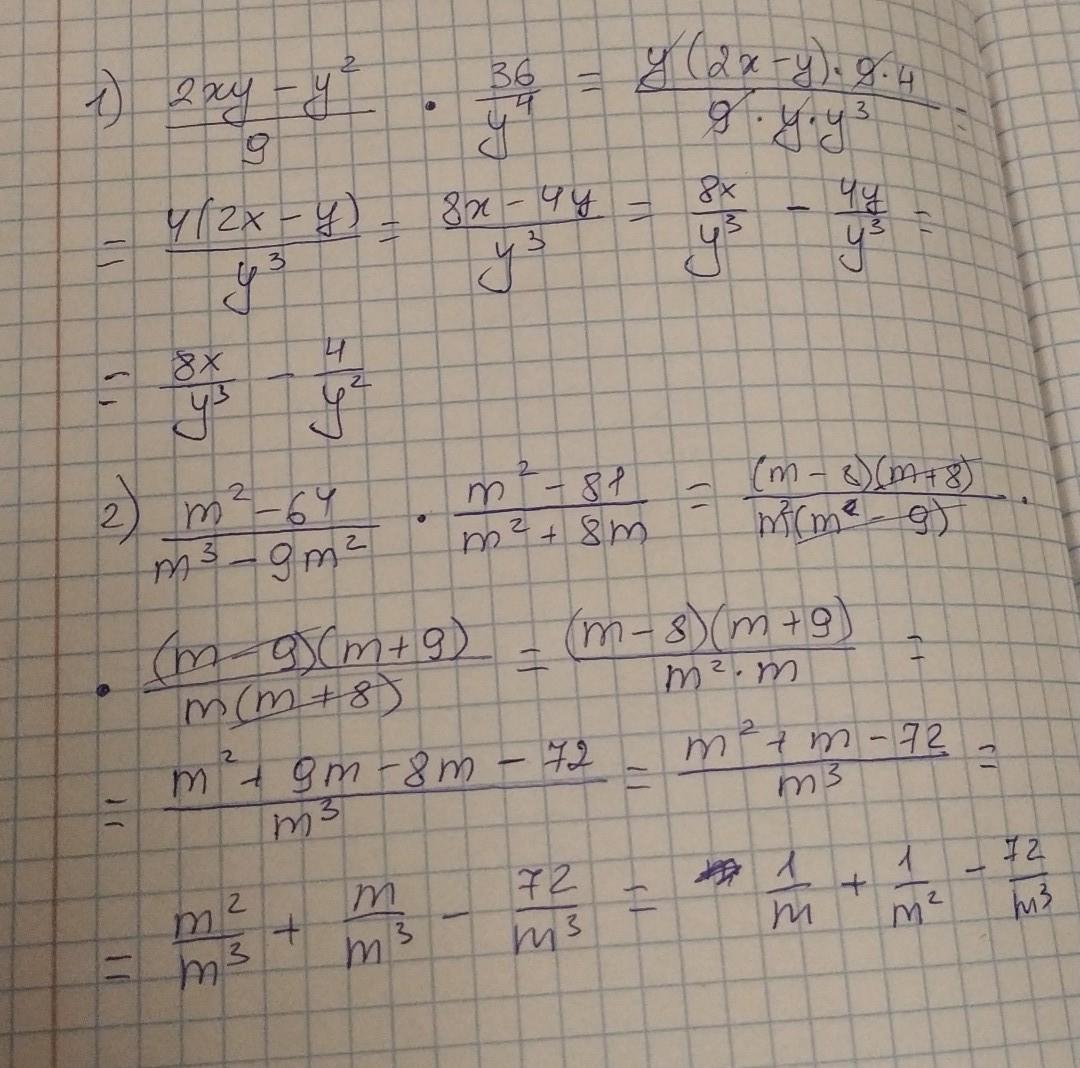 1) (2xy - y²)/9 · 36/y⁴ = (y(2x - y)·9·4)/(9·y·y³) =
= 4(2x - y)/y³ = (8x - 4y)/y³ = 8x/y³ - 4y/y³ =
= 8x/y³ - 4/y²
2) (m² - 64)/(m³ - 9m²) · (m² - 81)/(m² + 8m) = ((m - 8)(m + 8))/(m²(m - 9)) ·
· ((m - 9)(m + 9))/(m(m + 8)) = ((m - 8)(m + 9))/(m²·m) =
= (m² + 9m - 8m - 72)/m³ = (m² + m - 72)/m³ =
= m²/m³ + m/m³ - 72/m³ = 1/m + 1/m² - 72/m³